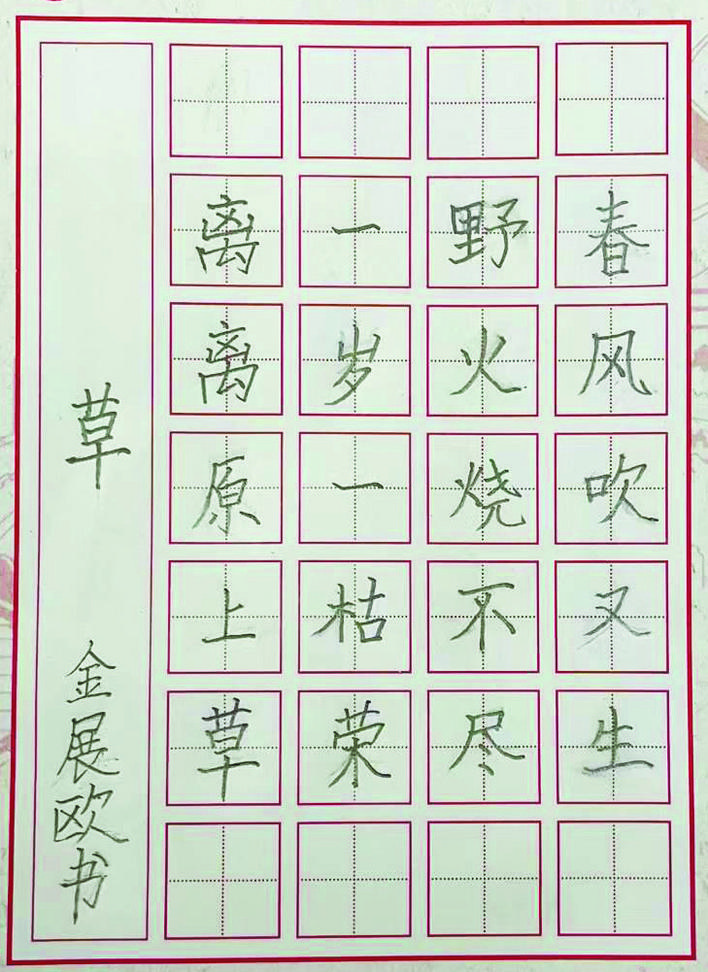 草
金展欧书
离离原上草
一岁一枯荣
野火烧不尽
春风吹又生